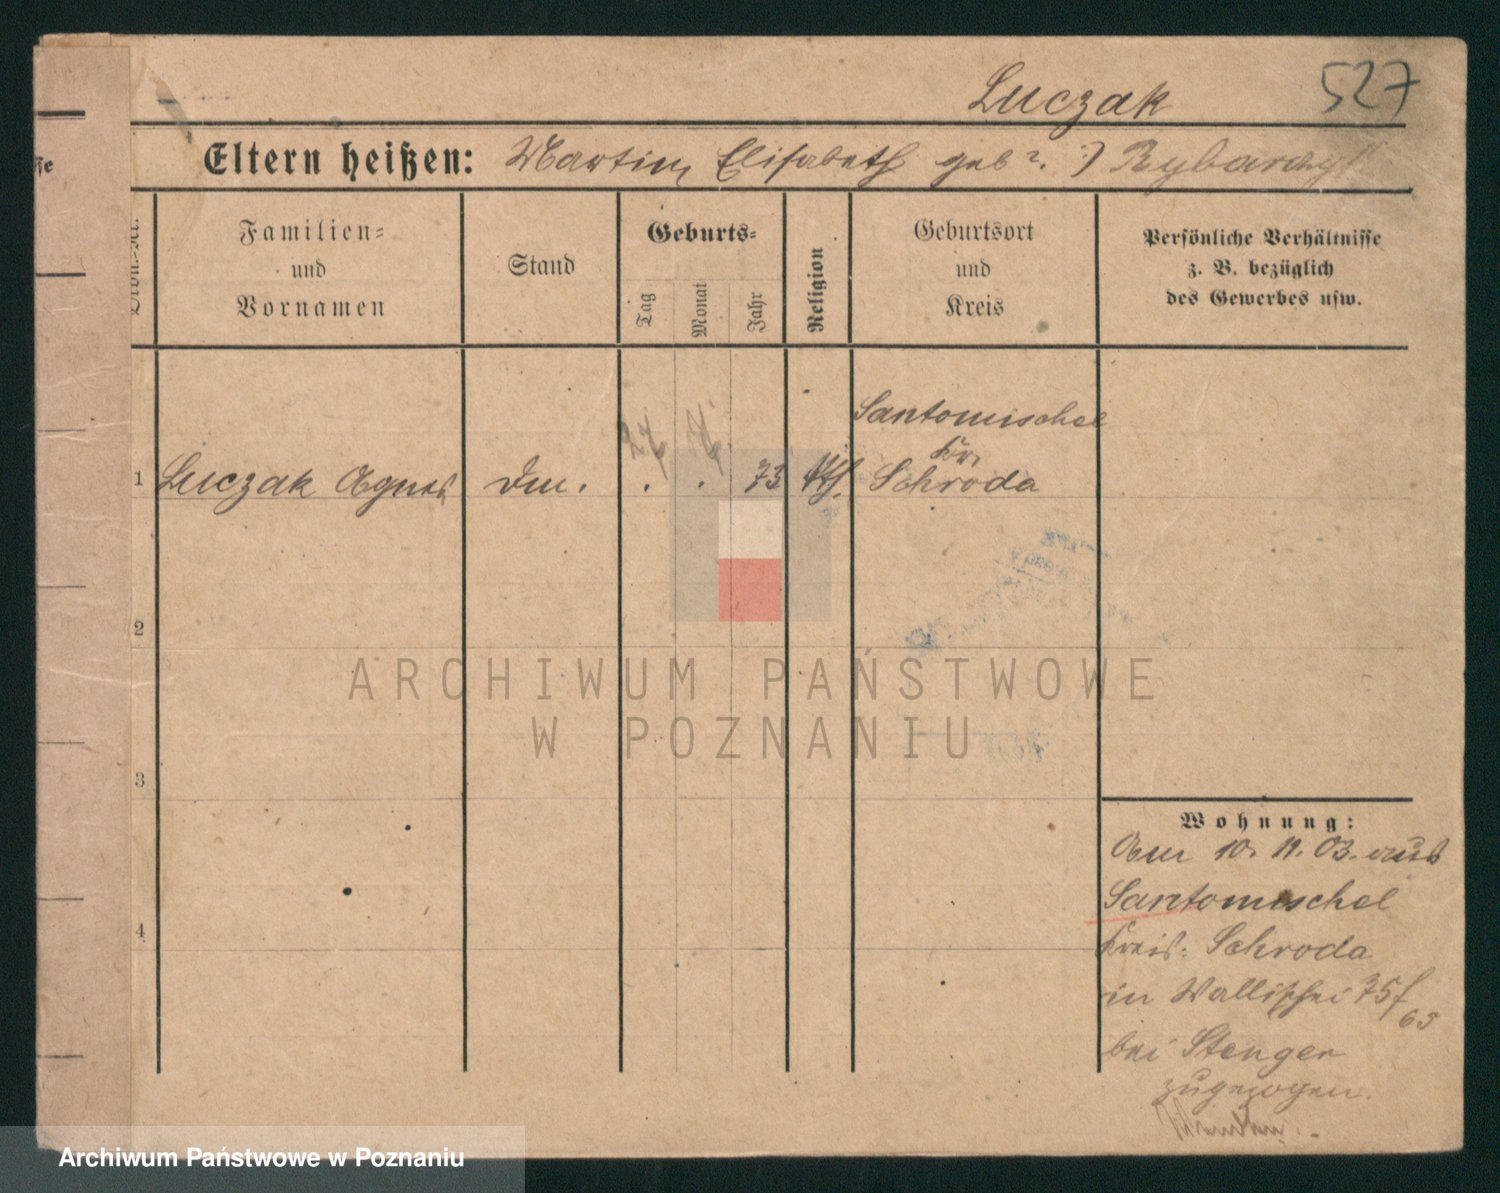 Luczak 527
Eltern heißen: Martin, Elisabeth geb.
Familien=
und
Vornamen
Stand
Geburts=
Tag
Monat
Jahr
Religion
Geburtsort
und
Kreis
Persönliche Verhältnisse
z. B. bezüglich
des Gewerbes usw.
Santomischel
Kr.
1 Luczak Agnes . . 73 kth. Schroda
2
3
4
Wohnung:
Am 10. 11. 03. aus
Santomischel
Kreis: Schroda
in Wallischei 75
65
bei Stenger
zugezogen.
ARCHIWUM PAŃSTWOWE
W POZNANIU
Archiwum Państwowe w Poznaniu